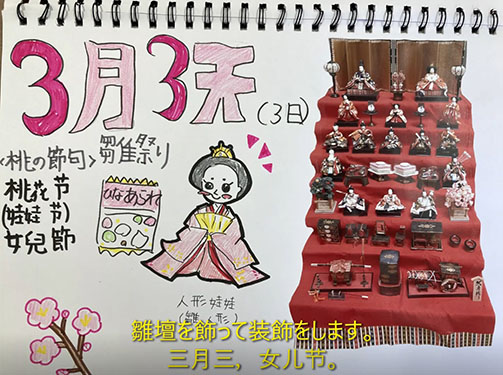 3月3天(3日)
<桃の節句>雛祭り
桃花节
(娃娃节)
女兒節
ひなあられ
人形娃娃
(雛人形)
雛壇を飾って装飾をします。
三月三，女儿节。